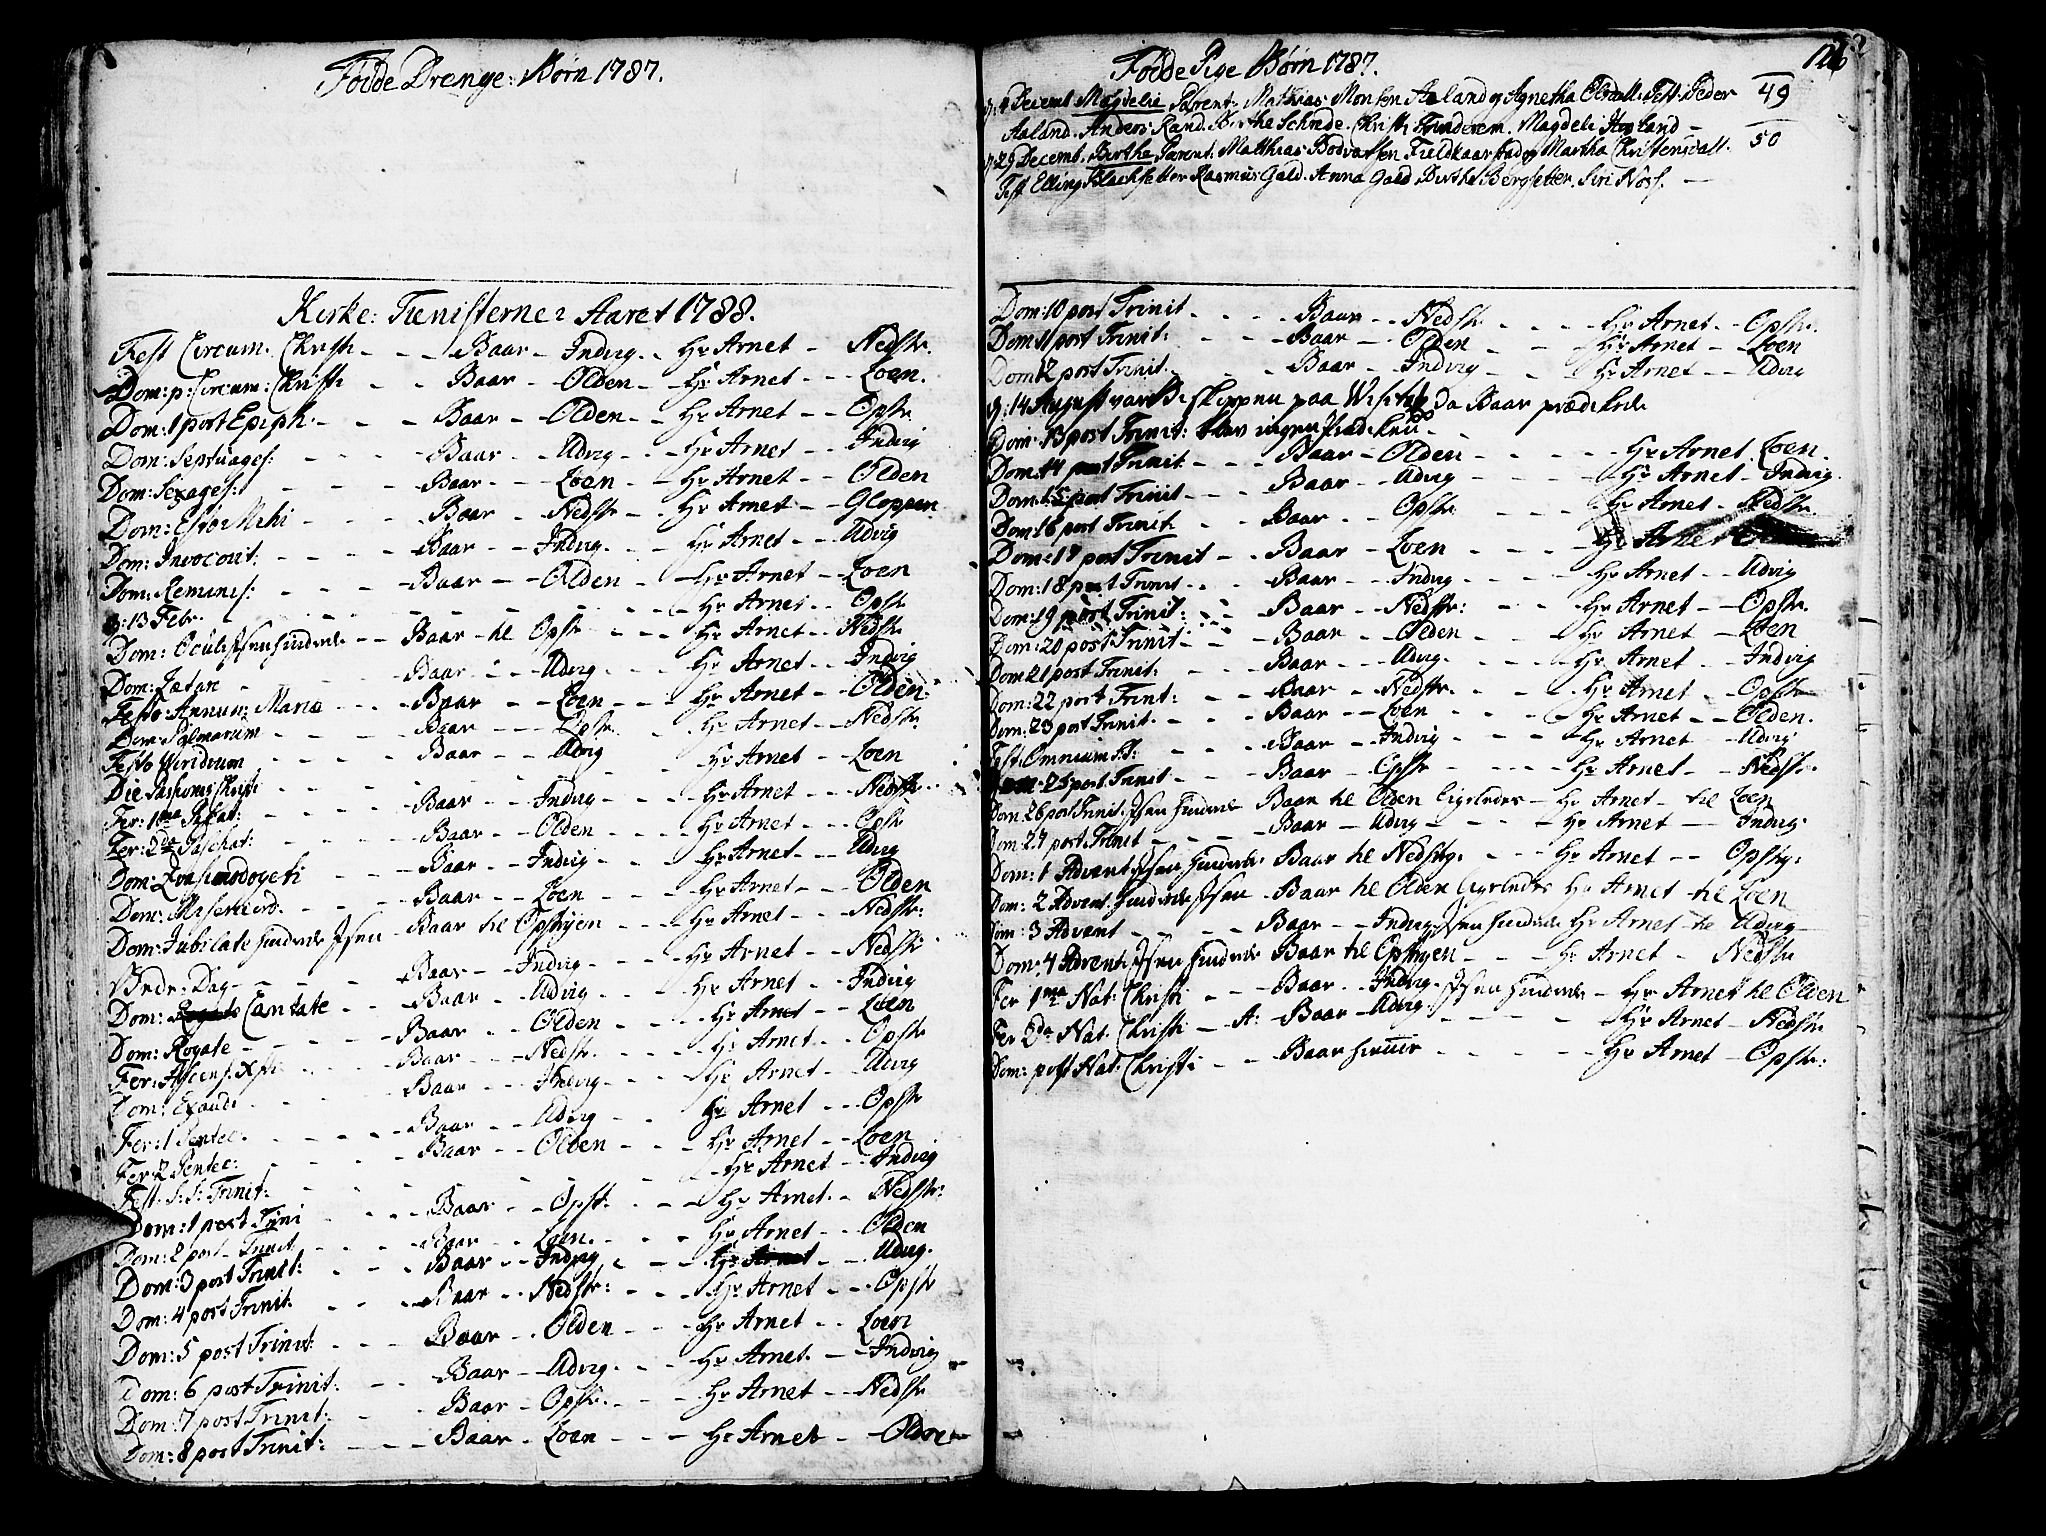 Fødde Drenge: Børn 1787.
Kirke: Tienisterne i Aaret 1788.
Fest Circum. Christi - - - Baar - Indvig - - Hr Arnet - Nedstr.
Dom: p: Circum: Christi - - Baar - Olden - - Hr Arnet - - Loen.
Dom: 1 post Epiph. - - - Baar - Olden - - Hr Arnet - - Opstr
Dom: Septuages: - - - - Baar - Udvig - - Hr Arnet - - Indvig
Dom: Sexages: - - - Baar - - Loen - - Hr Arnet - - Olden
Dom: Esto Mihi - - - - Baar - Nedstr - Hr Arnet - - Gloppen
Dom: Invocavit. - - - - Baar - - Indvig - - - Hr Arnet - - Udvig
Dom: Reminis: - - - - Baar - - Olden - - Hr Arnet - - Loen
d: 13 Febr. - - - - Hr Arnet - - Opstr
Dom: Oculi Isen hindrede - - Baar til Opstr - - - Hr Arnet - - Nedstr
Dom: Lætare - - - - Baar - - Udvig - - Hr Arnet - - Indvig
Festo Annunc: Mariæ - - - Baar - - Loen - - - Hr Arnet - - Olden
Dom: Palmarum - - - - Baar - - - Opstr - Hr Arnet - - Nedstr
Festo Viridium - - - - Baar - - Udvig - - Hr Arnet - - Loen
Die Passionis Christi - - - - Hr Arnet - - Nedstr
Fer: 1ma Paschat: - - - Baar - - Indvig - - - Hr Arnet - - Opstr
Fer: 2da Paschat: - - - Baar - - Olden - - - Hr Arnet - - Udvig
Dom: Quasimodogeti - - - Baar - - Indvig - - - Hr Arnet - - Olden
Dom: Misericord. - - - Baar - - Loen - - - Hr Arnet - - Nedstr:
Dom: Jubilate hindrede Isen - Baar til Opstryen - - - Hr Arnet - - Nedstr
Bede: Dag - - - - Baar - - Indvig - - - Hr Arnet - - Indvig
Dom: Cantate - - Baar - - Udvig - - - Hr Arnet - - Loen
Dom: Rogate - - - - - Baar - - Olden - - - Hr Arnet - - Opstr
Fer: Ascens: Xsti - - - - Baar - - Nedstr. - - - Hr Arnet - - Udvig
Dom: Exaudi - - - - Baar - - Indvig - - - Hr Arnet - - Opstr
Fer: 1 Pentec. - - - - Baar - - Udvig - - Hr Arnet - - Loen
Fer: 2 Pentec: - - - - Baar - - Olden - - - Hr Arnet - - Indvig
Fest: S: S: Trinit: - - - - Hr Arnet - - Nedstr:
Dom: 1 post Trini - - - Baar - - Opst. - - - Hr Arnet - - Olden
Dom: 2 post Trinit - - - Baar - - Loen. - - - Udvig.
Dom: 3 post Trinit: - - - Baar - - Indvig - - Hr Arnet - - Opstr
Dom: 4 post Trinit. - - - Baar - - Nedstr: - - - Hr Arnet - - Loen
Dom: 5 post Trinit: - - - Baar - - Olden - - - Hr Arnet. - - Indvig
Dom: 6 post Trinit: - - Baar - - Udvig. - - - Hr Arnet - - Nedstr
Dom: 7 post Trinit: - - Baar - - Opstr. - - -
Dom: 8 post Trinit: - - - Baar - Loen - - - Hr Arnet - Olden
Fødde Pige Børn 1787.
d: 9 Decemt. Magdelie Parent: Mathias Monsen Aaland og Agnetha Test: Peder 49
Aaland. Anders Rand. Christi Magdeli Hogland -
d: 29 Decemt. Birthe Parent: Matthias Fieldkaarstad og Martha 50
Test Elling Rasmus Gald. Anna Gald Birthe Bergsetter. Siri Noss. -
Dom: 10 post Trinit - - - - Baar - - Nedstr - - - - Hr Arnet - - Opstr.
Dom 11 post Trinit: - - - - Baar - - Olden - - Hr Arnet - - Loen
Dom 12 post Trinit - - - - Baar - - Indvig - - Hr Arnet - - Udvig
d: 14 August var Biskoppen paa Visitatz da Baar prædikede
Dom: 13 post Trinit: blev ingen prædiken.
Dom 14 post Trinit. - - - Baar - Olden - - - - Hr Arnet - Loen.
Dom: 15 post Trinit - - - Baar - Udvig - - - - Hr Arnet - Indvig
Dom: 16 post Trinit. - - Baar - - Opstr - - - Hr Arnet - - Nedstr.
Dom: 17 post Trinit - - Baar - - Loen - - - -
Dom: 18 post Trinit - - Baar - - Indvig - - - - Hr Arnet - - Udvig
Dom: 19 post Trinit: - - Baar - - Nedstr: - - - Hr Arnet - - Opstr.
Dom: 20 post Trinit - - Baar - - Olden - - - Hr Arnet - - Loen
Dom 21 post Trinit: - - Baar - - Udvig. - - - Hr Arnet - Indvig
Dom: 22 post Trinit: - - Baar - - Nedstr. - - - Hr Arnet - - Opstr
Dom: 23 post Trinit. - - Baar - - Loen - - - Hr Arnet - - Olden.
Fest: Omnium SS: - - Baar - - Indvig - - - Hr Arnet - - Udvig
25 post Trinit - - - Baar - Opstr - - - Hr Arnet - - Nedstr.
Dom: 26 post Trinit. Isen hindrede Baar til Olden ligeledes - Hr Arnet - til Loen
Dom 27 post Trinit - - - Baar - Udvig - - - Hr Arnet - Indvig.
Dom: 1 Advent Isen hindrede Baar til Nedstry. - - - Hr Arnet - - Opstry.
Dom: 2 Advent. hindrede Isen - Baar til Olden ligeledes Hr Arnet - til Loen
Dom: 3 Advent - - - - Baar - - Indvig Isen hindrede Hr Arnet - til Udvig
Dom: 4 Advent Isen hindrede Baar til Opstryen - - - Hr Arnet - Nedstr
Fer 1ma Nat: Christi - - Baar - Indvig - Isen hindrede - Hr Arnet til Olden
Fer 2da Nat: Christi - - Baar - Udvig - - - - Hr Arnet - Nedstr
Dom: post Nat: Christi - - Baar - - - - Hr Arnet - Opstr: